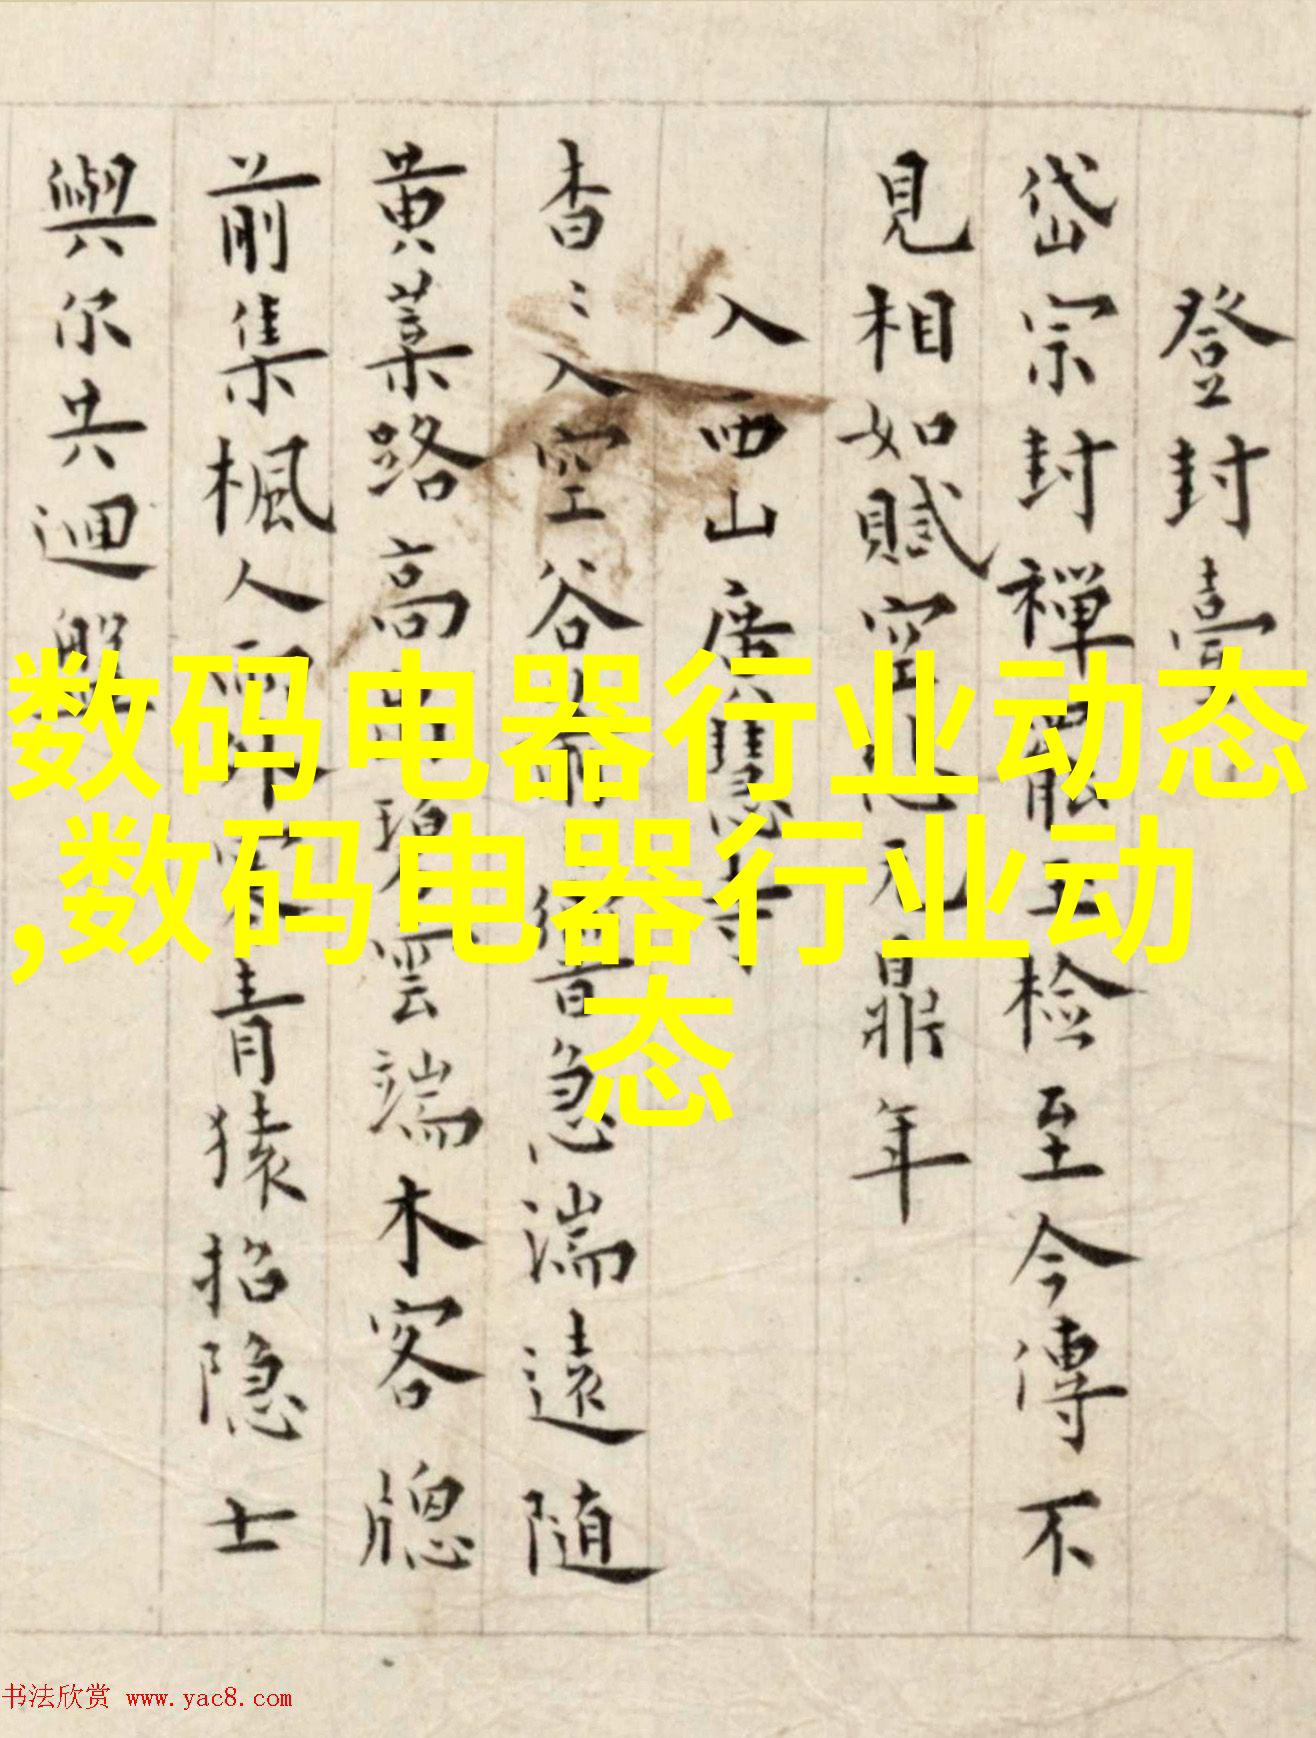 登封臺
岱宗封禅罷玉检至今傳不
見相如賦空 元鼎年
入西山廣慧寺
杳〻入空谷 急湍遠随
黄葉路高 碧雲端木客牕
前集楓人雨 青猿招隐士
與尔共迴盤
数码电器行业动态
,数码电器行业动
态
书法欣赏 www.yac8.com